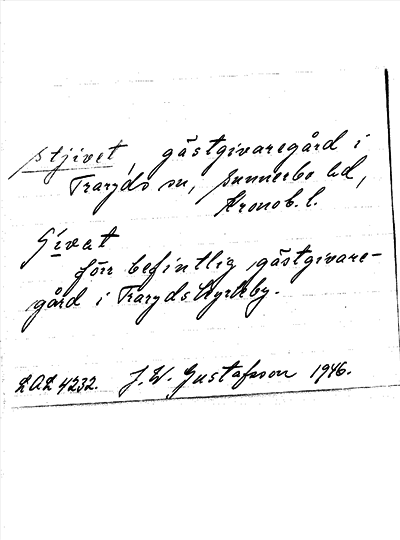 stjivet, gästgivaregård i
Traryds sn, Sunnerbo hd,
Kronob. l.
Givat
förr befintlig gästgivare-
gård i Traryds kyrkby.
LAL 4232. J. W. Gustafsson 1946.